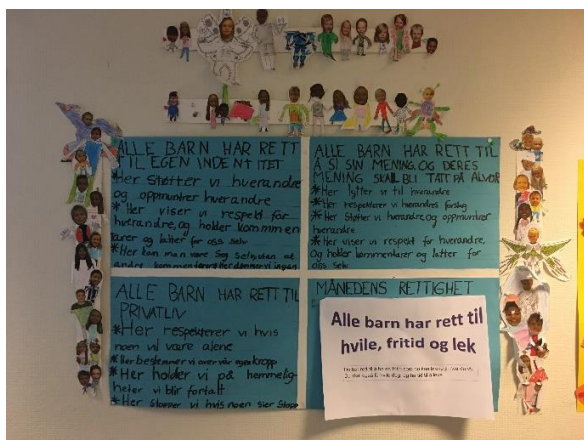 ALLE BARN HAR RETT
TIL EGEN INDENTITET
*Her støtter vi hverandre
og oppmuntrer hverandre
*Her viser vi respekt for
hverandre, og holder kommen
tarer og latter for oss selv
*Her kan man være seg selv, uten at
andre kommenterer
ALLE BARN HAR RETT TIL
Å SI SIN MENING, OG DERES
MENING SKAL BLI TATT PÅ ALVOR
*Her lytter vi til hverandre
*Her respekterer vi hverandres forslag
*Her støtter vi hverandre, og oppmuntrer
hverandre
*Her viser vi respekt for hverandre,
og holder kommentarer og latter for
oss selv
ALLE BARN HAR RETT TIL
PRIVATLIV
*Her respekterer vi hvis
noen vil være alene
*Her bestemmer vi over vår egen kropp
*Her holder vi på hemmelig-
heter vi blir fortalt
*Her stopper vi hvis noen sier stopp
MÅNEDENS RETTIGHET
Alle barn har rett til
hvile, fritid og lek